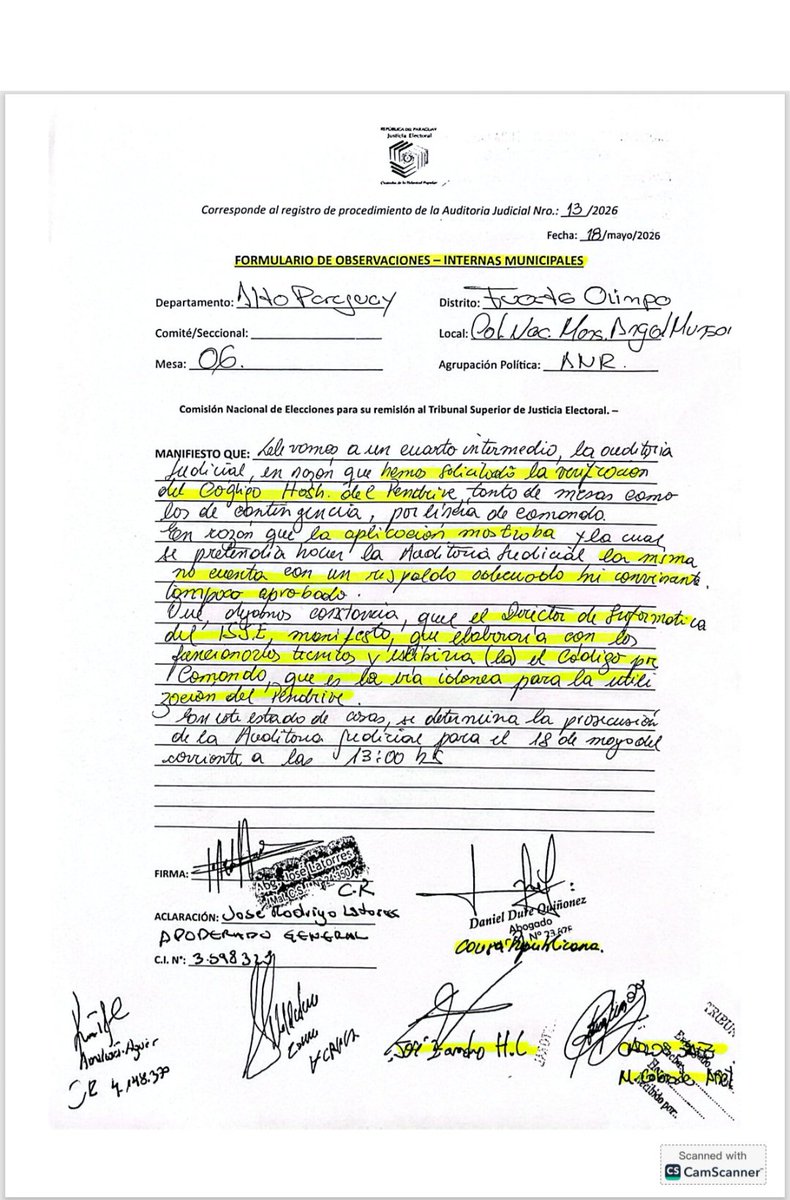 REPÚBLICA DEL PARAGUAY
Justicia Electoral
Custodio de la Voluntad Popular
Corresponde al registro de procedimiento de la Auditoria Judicial Nro.: 13/2026
Fecha: 18/mayo/2026
FORMULARIO DE OBSERVACIONES – INTERNAS MUNICIPALES
Departamento: Alto Paraguay Distrito: Fuerte Olimpo
Comité/Seccional: Local: Col. Nac. Mons. Angel Muzzol
Mesa: 06. Agrupación Política: ANR.
Comisión Nacional de Elecciones para su remisión al Tribunal Superior de Justicia Electoral. –
MANIFIESTO QUE: vamos a un cuarto intermedio, la auditoria
Judicial, en razón que hemos solicitado la verificacion
del Hash. del Pendrive, tanto de mesas como
los de contingencia, por linea de comando.
En razón que la aplicación mostraba y la cual
se pretendia hacer la Auditoria Judicial la misma
no cuenta con un respaldo adecuado ni
tampoco aprobado.
Que, dejamos constancia, que el Director de Informatica
del TSJE, manifesto, que elaboraria con los
funcionarios tecnicos y (la) el Código por
Comando, que es la via idonea para la utili
zacion del Pendrive.
Con este estado de cosas, se determina la prosecusión
de la Auditoria Judicial para el 18 de mayo del
corriente a las 13:00 hs
FIRMA:
Abg. José Latorres
C.R
ACLARACIÓN: José Rodrigo Latorres
APODERADO GENERAL
C.I. N°: 3.598.323
Daniel Dure Quiñonez
Abogado
Causa Republicana.
CR 4.148.370
José H.C.
CARLOS
M. Colorado
Recibido por:
Scanned with
CS CamScanner